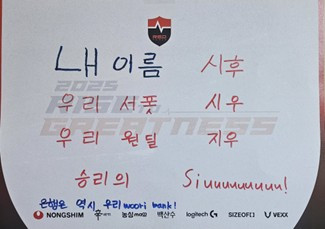 내 이름 시후
2025
우리 서폿 시우
우리 원딜 지우
승리의 Siuuuuuuuuu!
은행은 역시 우리 woori bank!
NONGSHIM 농심 백산수 logitech G SIZEOF[] VEXX